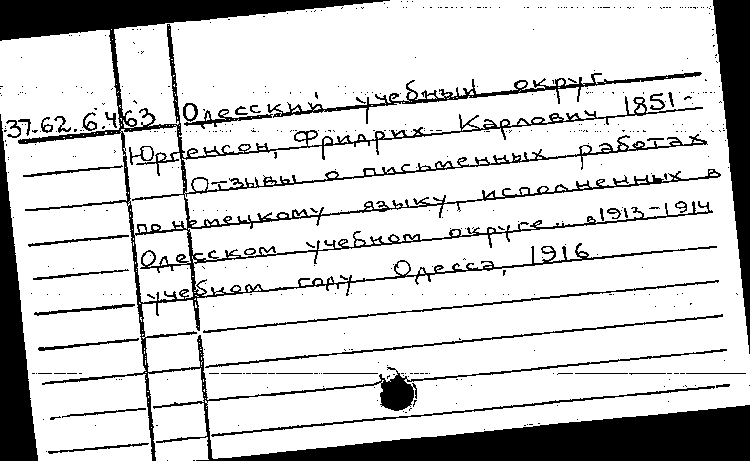 37.62.6.463 Одесский учебный округ.
Юргенсон, Фридрих Карлович, 1851-
Отзывы о письменных работах
по немецкому языку, исполненных в
Одесском учебном округе.. в 1913-1914
учебном году. Одесса, 1916